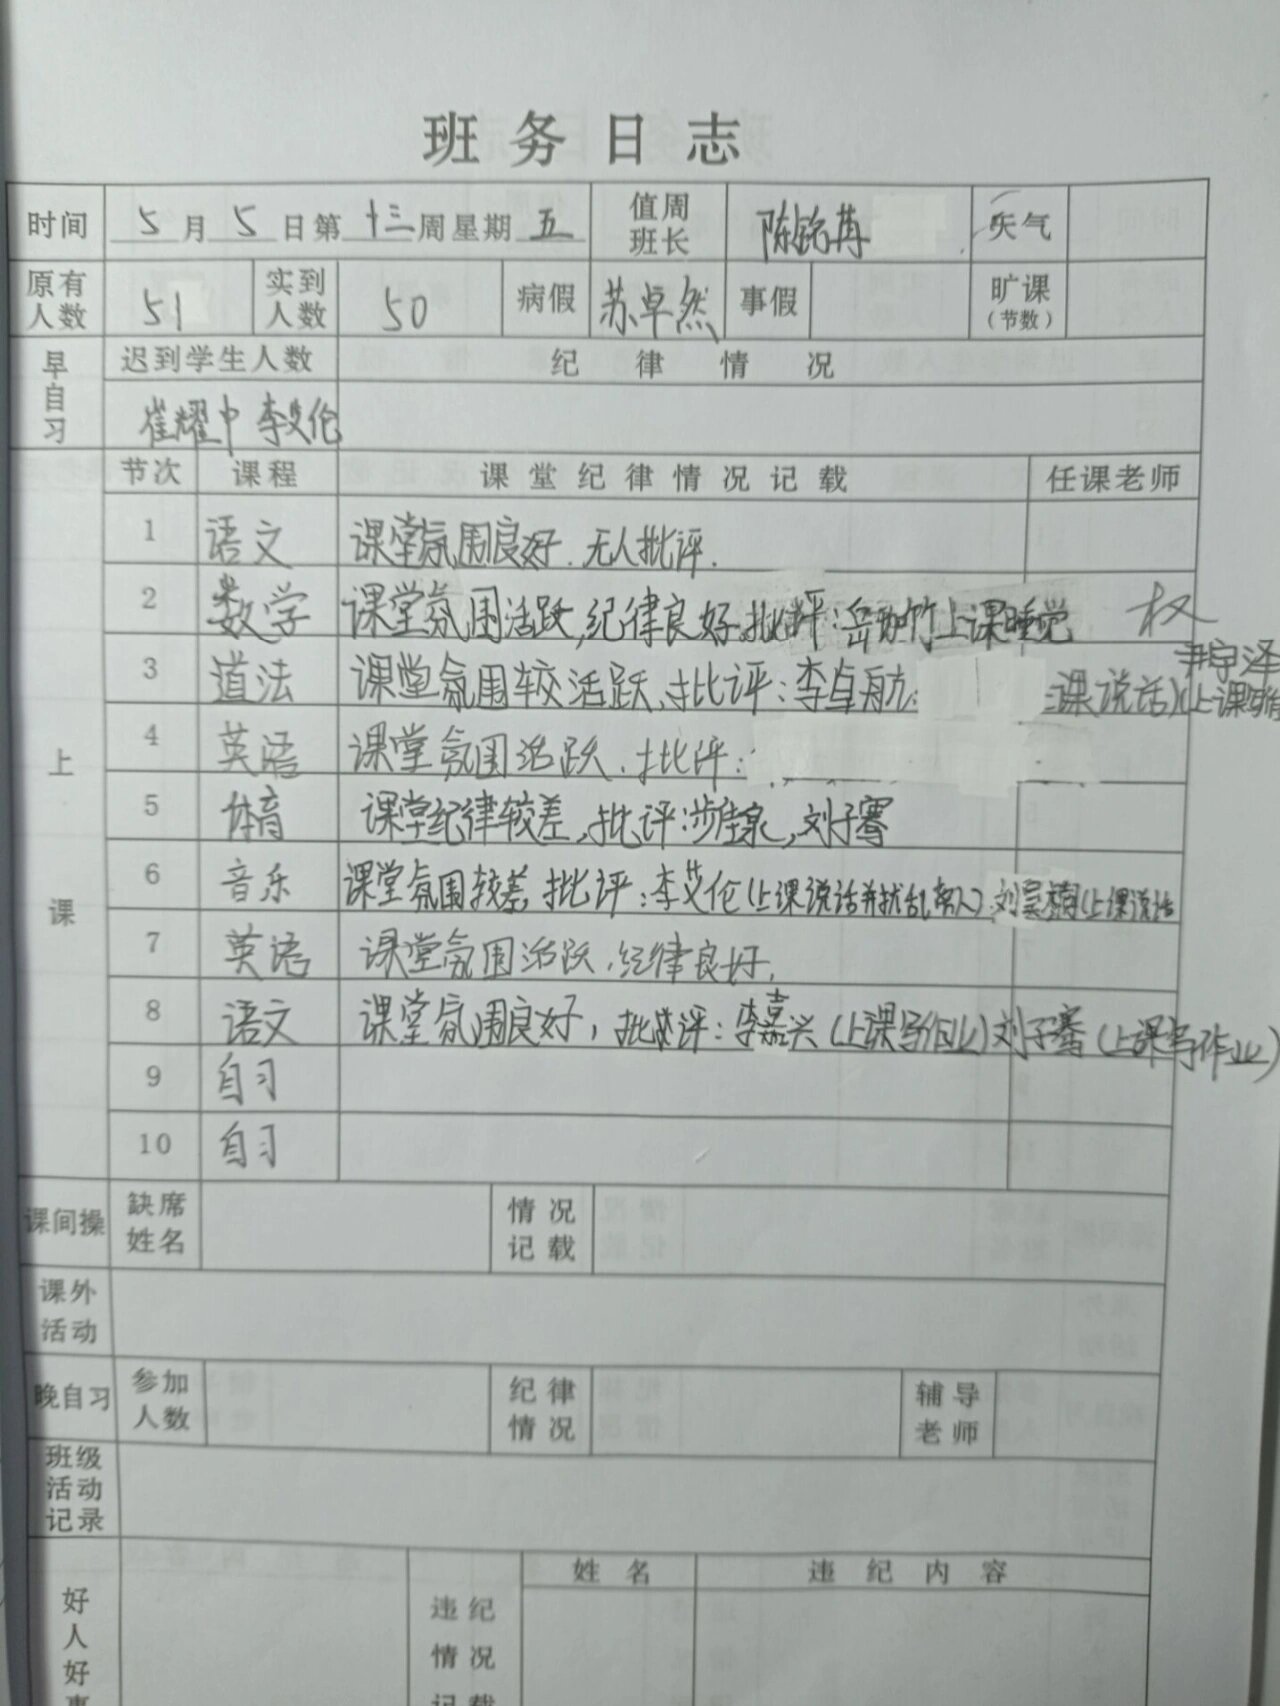 班务日志
时间 5月5日第十三周星期五 值周班长 陈铭苒 天气
原有人数 51 实到人数 50 病假 苏卓然 事假 旷课(节数)
早自习 迟到学生人数 纪律情况
崔耀中 李艾伦
节次 课程 课堂纪律情况记载 任课老师
上课
1 语文 课堂氛围良好.无人批评.
2 数学 课堂氛围活跃,纪律良好.批评:岳 竹上课睡觉 权
3 道法 课堂氛围较活跃,批评:李卓航 课说话) 尹宇泽(上课
4 英语 课堂氛围活跃.批评:
5 体育 课堂纪律较差,批评:涉佳泉,刘子骞
6 音乐 课堂氛围较差 批评:李艾伦(上课说话并扰乱旁人).刘昊 (上课说话
7 英语 课堂氛围活跃.纪律良好.
8 语文 课堂氛围良好,批评:李嘉兴(上课写作业)刘子骞(上课写作业)
9 自习
10 自习
课间操 缺席姓名 情况记载
课外活动
晚自习 参加人数 纪律情况 辅导老师
班级活动记录
好人好事 违纪情况记载 姓名 违纪内容